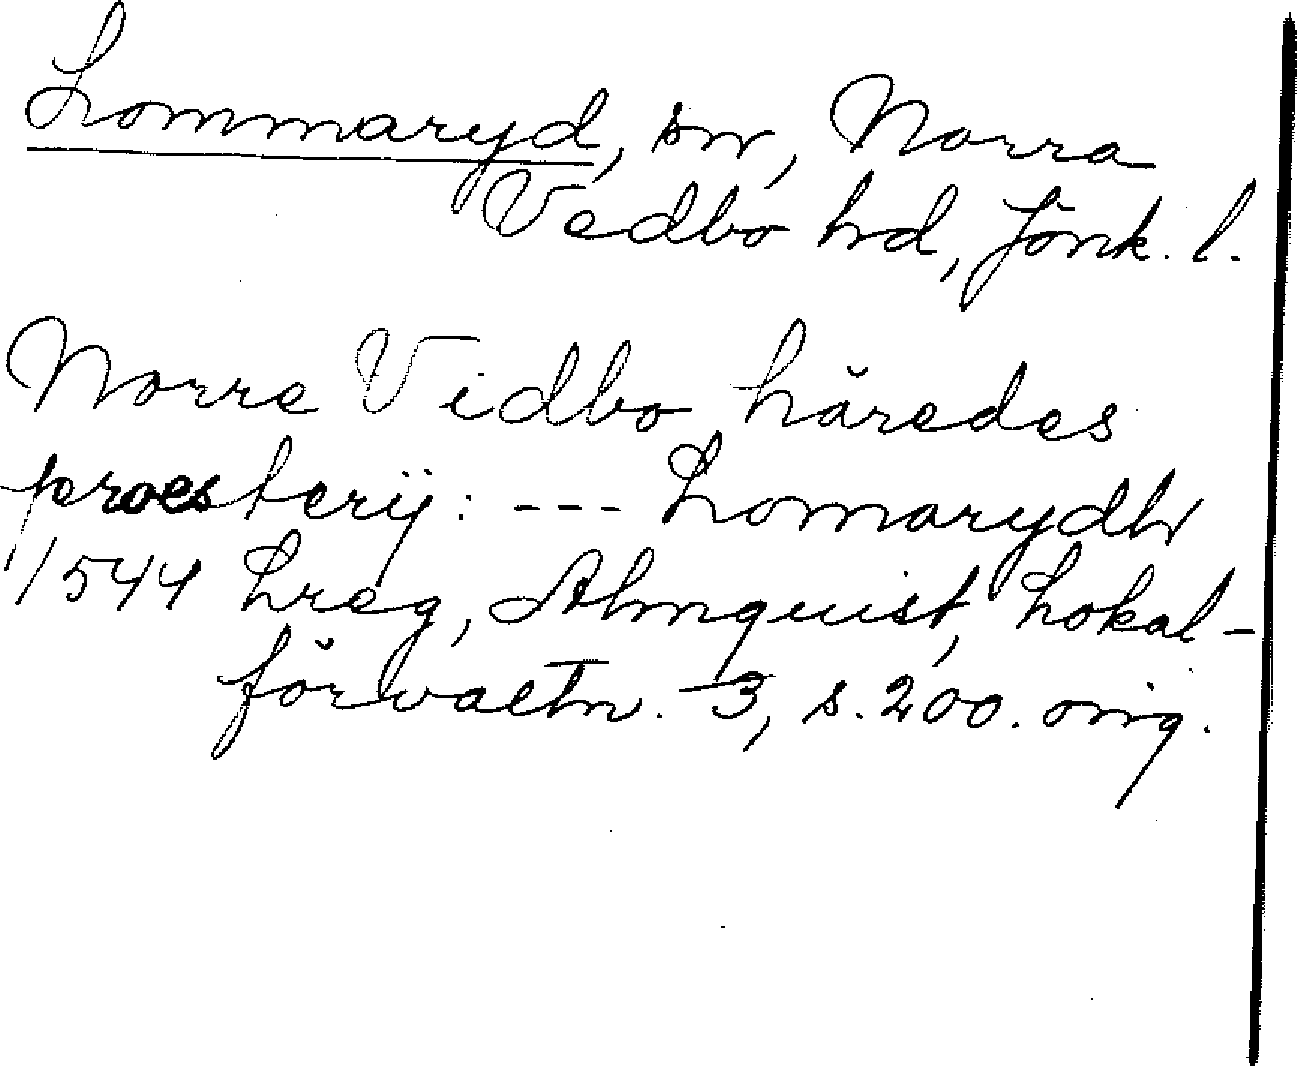 Lommaryd, sn, Norra
Vedbo hd, Jönk. l.
Norre Vidbo häredes
proesterij: --- Lomarydh
1544 Lreg, Almquist, Lokal-
förvaltn. 3, s. 200. orig.